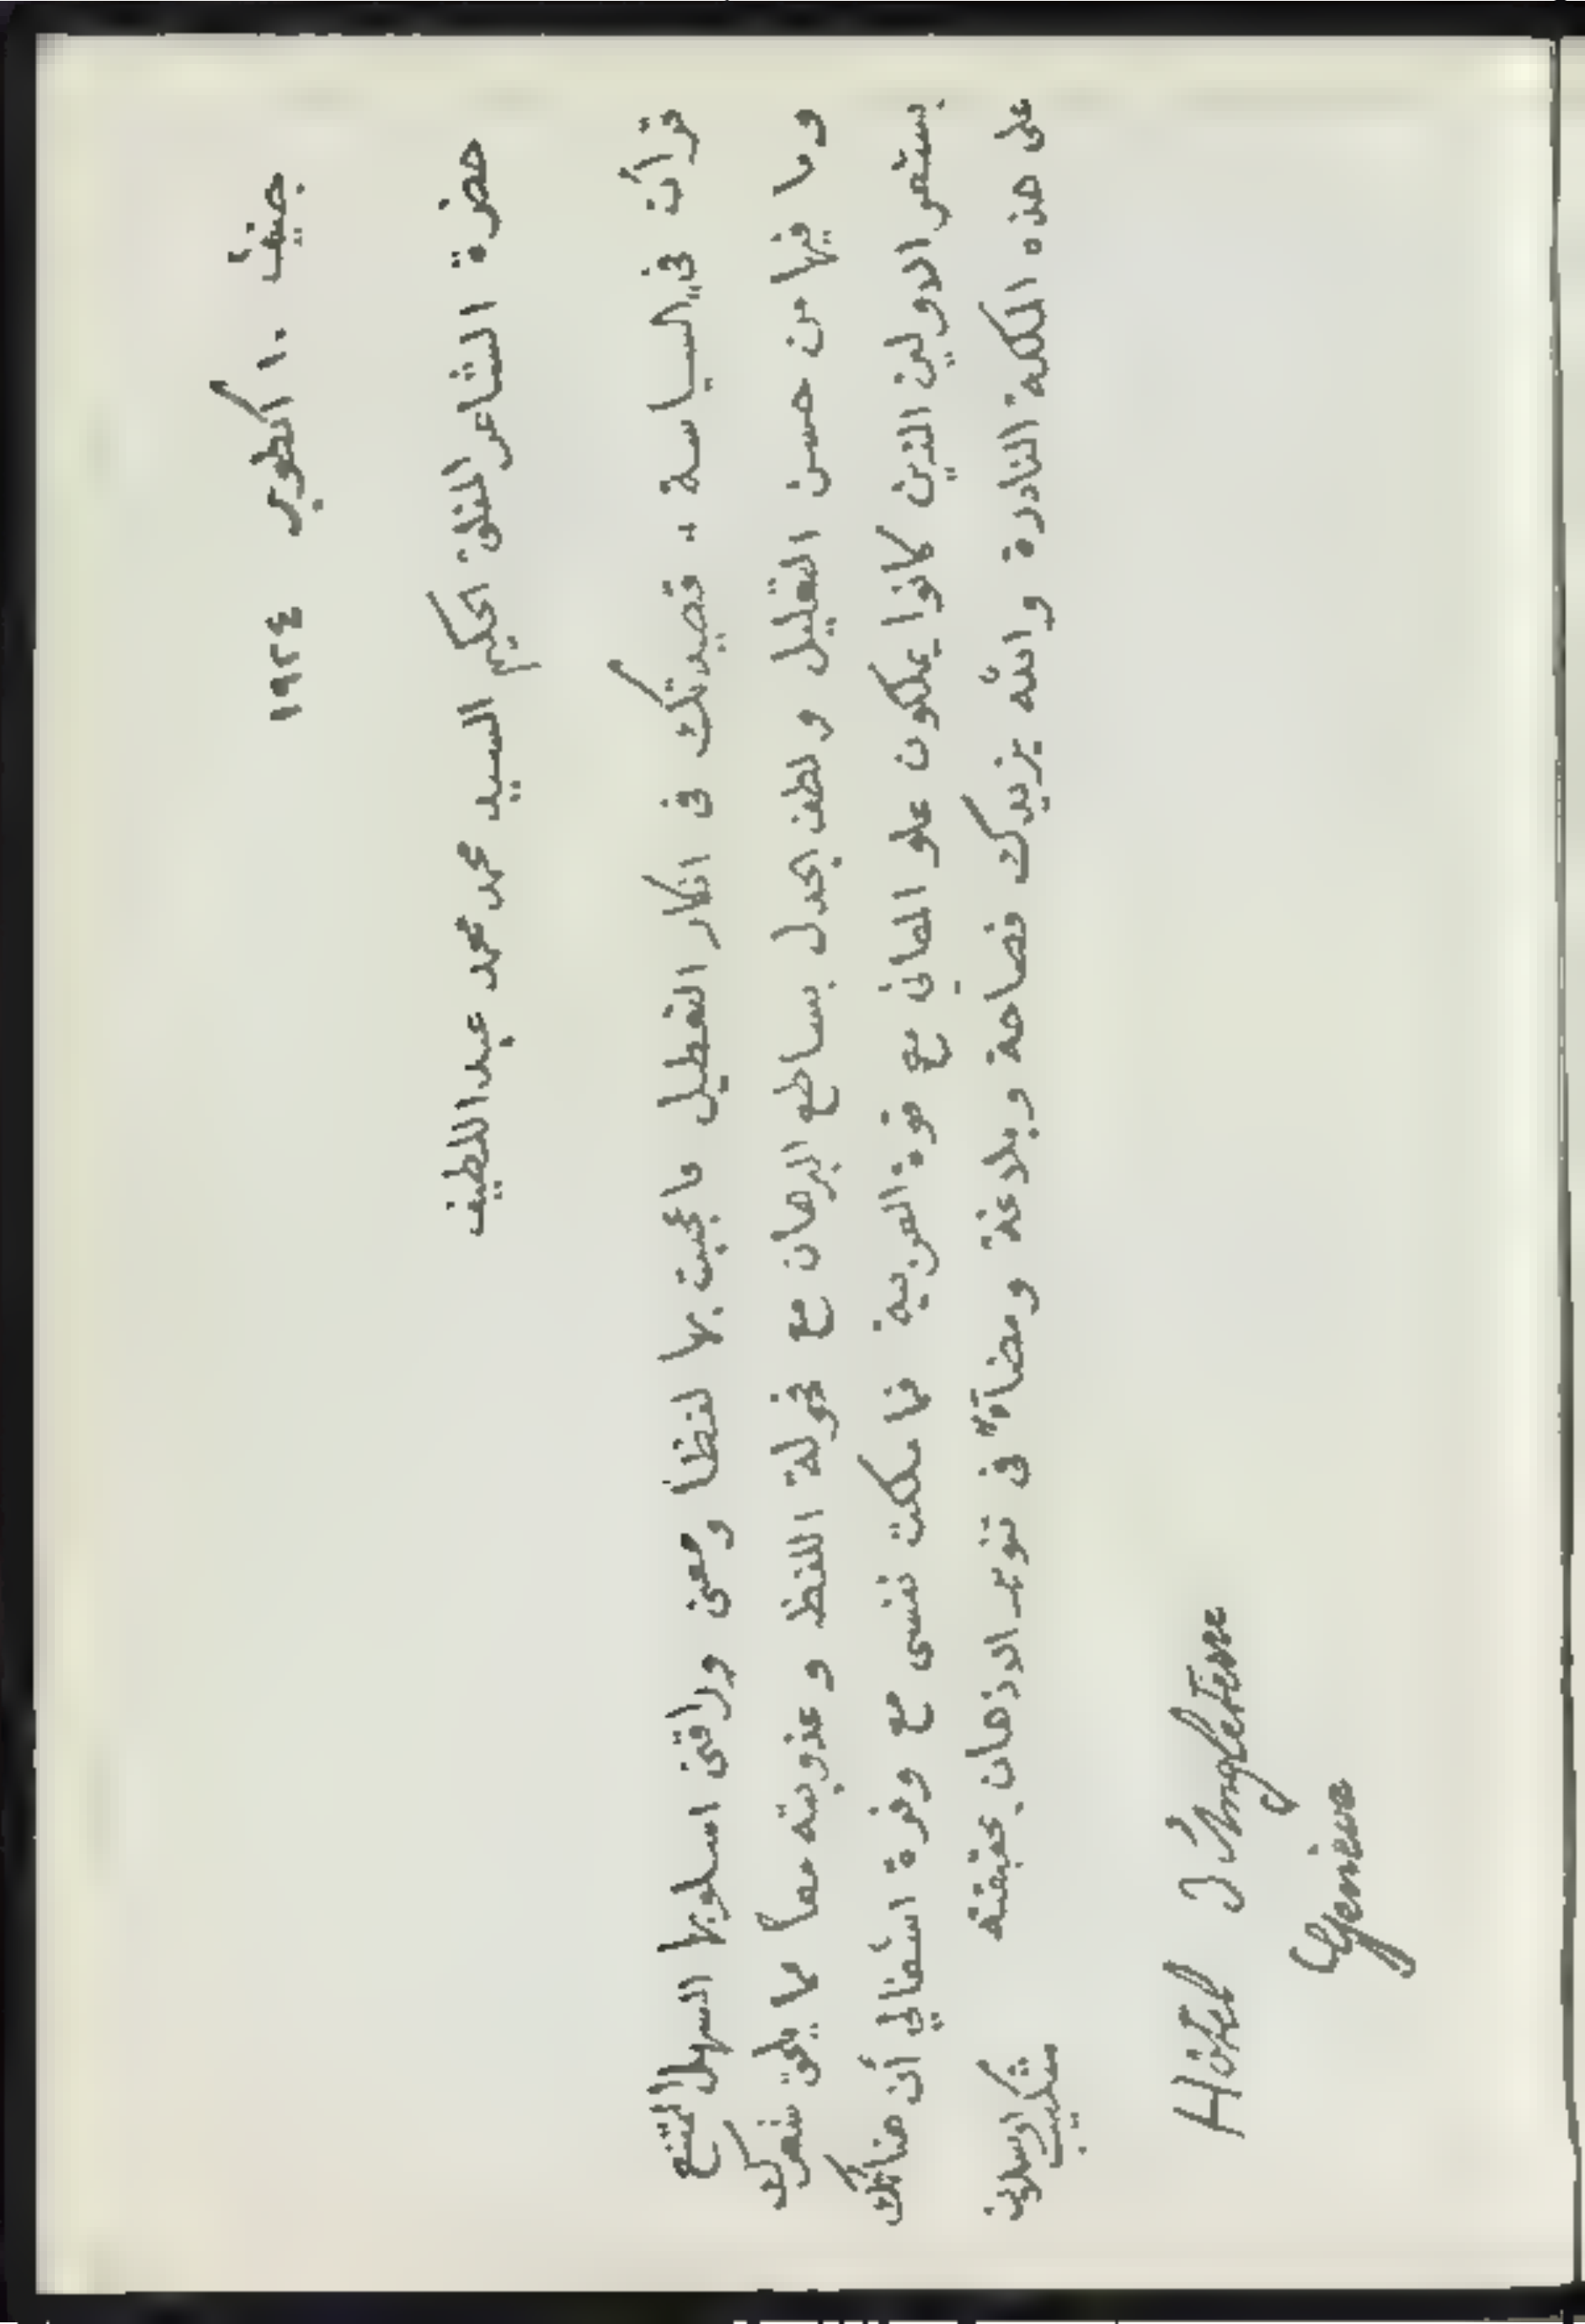 جنيف ١٠ اكطوبر ١٩٢٤
حضرة الشاعر المفلق الحكيم السيد محمد محمد عبد اللطيف
قرأت في السياسة " قصيدتك في انكار التعطيل فاعجبت بها لفظاً ومعنى وراقني اسلوبها السهل الممتنع
وما فيها من حسن التعليل ولطف الجدل بساطع البرهان مع فحولة اللفظ وعذوبته معاً مما يلحق شعرك
بشعر الاولين الذين كانوا يملكون علو المعاني مع قوة العربية فما ملكت نفسي مع وفرة اشغالي أن هنأتك
على هذه الملكة النادرة والله يزيدك فصاحة وبلاغة ومضآءً في تنوير الاذهان بحقيقته
شكيب ارسلان
Hôtel d'Angleterre
Genève